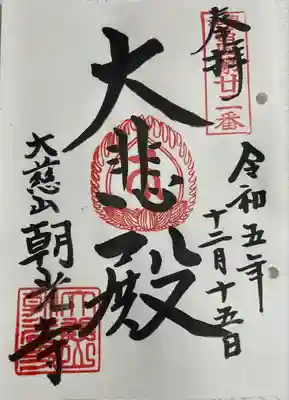 奉拝
廿一番
令和五年
十二月十五日
大悲殿
大慈山朝光寺